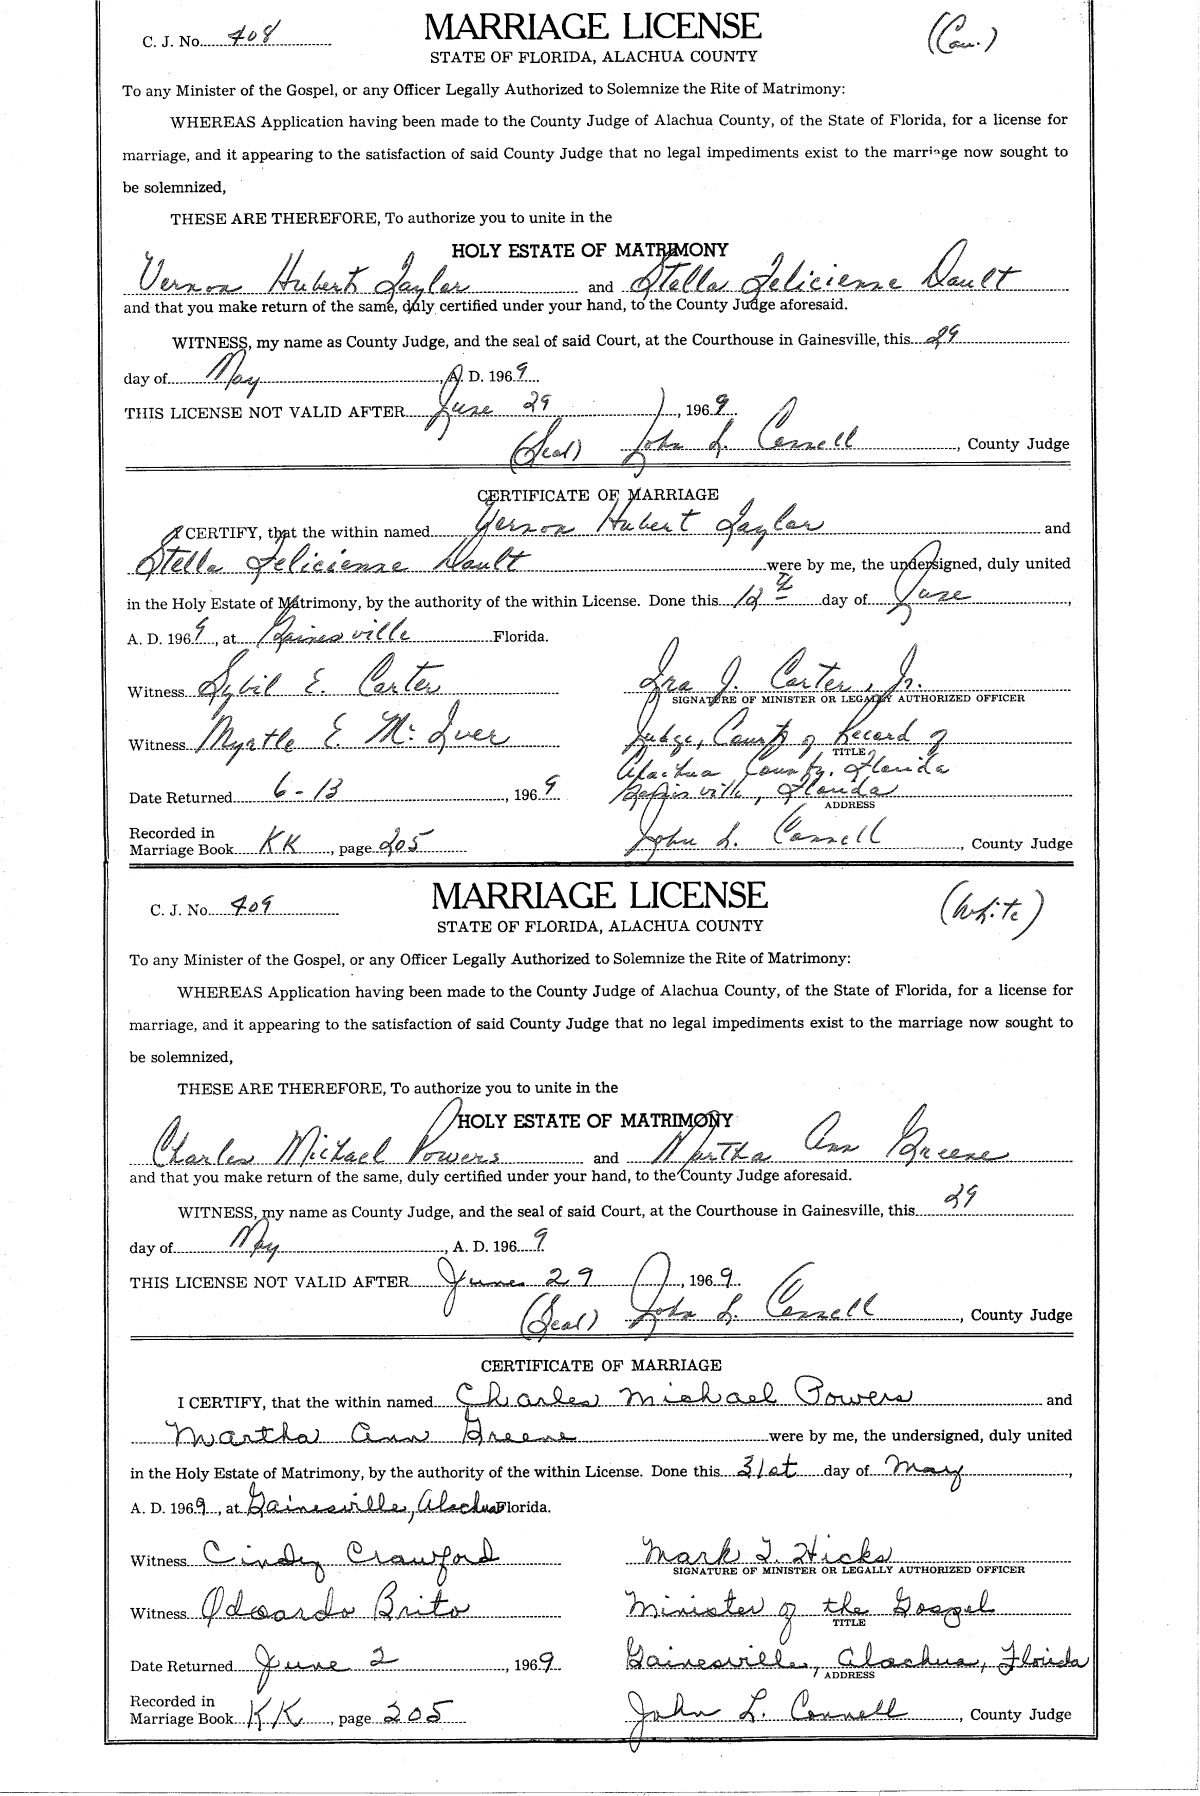 C. J. No. 408 MARRIAGE LICENSE (Cau.)
STATE OF FLORIDA, ALACHUA COUNTY
To any Minister of the Gospel, or any Officer Legally Authorized to Solemnize the Rite of Matrimony:
WHEREAS Application having been made to the County Judge of Alachua County, of the State of Florida, for a license for
marriage, and it appearing to the satisfaction of said County Judge that no legal impediments exist to the marriage now sought to
be solemnized,
THESE ARE THEREFORE, To authorize you to unite in the
HOLY ESTATE OF MATRIMONY
Vernon Hubert Taylor and Stella Felicienne Dault
and that you make return of the same, duly certified under your hand, to the County Judge aforesaid.
WITNESS, my name as County Judge, and the seal of said Court, at the Courthouse in Gainesville, this 29
day of May, A. D. 1969
THIS LICENSE NOT VALID AFTER June 29, 1969
(Seal) John L. Connell, County Judge
CERTIFICATE OF MARRIAGE
I CERTIFY, that the within named Vernon Hubert Taylor and
Stella Felicienne Dault were by me, the undersigned, duly united
in the Holy Estate of Matrimony, by the authority of the within License. Done this 12th day of June,
A. D. 1969, at Gainesville Florida.
Witness Sybil E. Carter Ira J. Carter, Jr.
SIGNATURE OF MINISTER OR LEGALLY AUTHORIZED OFFICER
Witness Myrtle E. McIver Judge, County of Record of
TITLE
Alachua County, Florida
Date Returned 6-13, 1969 Gainesville, Florida
ADDRESS
Recorded in
Marriage Book KK, page 205 John L. Connell, County Judge
C. J. No. 409 MARRIAGE LICENSE (White)
STATE OF FLORIDA, ALACHUA COUNTY
To any Minister of the Gospel, or any Officer Legally Authorized to Solemnize the Rite of Matrimony:
WHEREAS Application having been made to the County Judge of Alachua County, of the State of Florida, for a license for
marriage, and it appearing to the satisfaction of said County Judge that no legal impediments exist to the marriage now sought to
be solemnized,
THESE ARE THEREFORE, To authorize you to unite in the
HOLY ESTATE OF MATRIMONY
Charles Michael Powers and Martha Ann Greene
and that you make return of the same, duly certified under your hand, to the County Judge aforesaid.
WITNESS, my name as County Judge, and the seal of said Court, at the Courthouse in Gainesville, this 29
day of May, A. D. 1969
THIS LICENSE NOT VALID AFTER June 29, 1969
(Seal) John L. Connell, County Judge
CERTIFICATE OF MARRIAGE
I CERTIFY, that the within named Charles Michael Powers and
Martha Ann Greene were by me, the undersigned, duly united
in the Holy Estate of Matrimony, by the authority of the within License. Done this 31st day of May,
A. D. 1969, at Gainesville, Alachua Florida.
Witness Cindy Crawford Mark T. Hicks
SIGNATURE OF MINISTER OR LEGALLY AUTHORIZED OFFICER
Witness Odoardo Brito Minister of the Gospel
TITLE
Date Returned June 2, 1969 Gainesville, Alachua, Florida
ADDRESS
Recorded in
Marriage Book KK, page 205 John L. Connell, County Judge